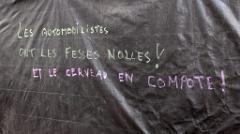 LES AUTOMOBILISTES
ONT LES FESSES MOLLES !
ET LE CERVEAU EN COMPOTE !